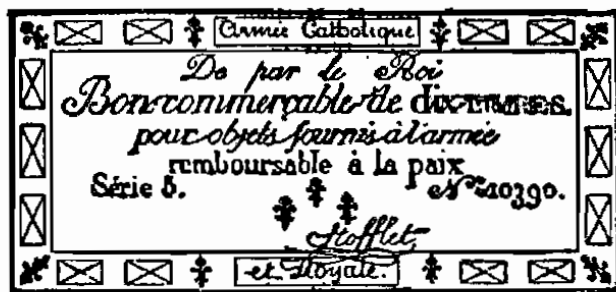 Armée Catholique
De par le Roi
Bon commerçable de dix LIVRES.
pour objets fournis à l'armée
remboursable à la paix
Série 5. Nº 10390.
Stofflet
et Royale.